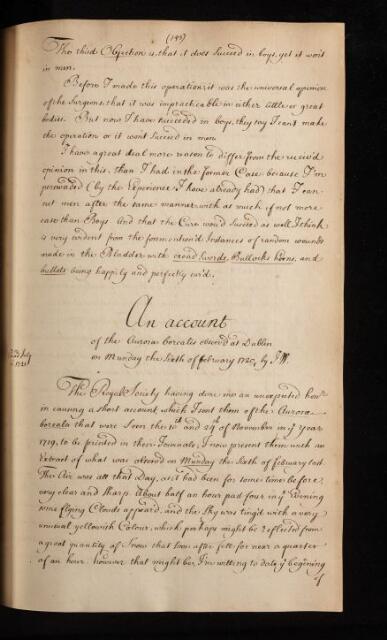 (145)
The third Objection is, that it does succeed in boys, yet it wont
in men.
Before I made this operation it was the universal opinion
of the Surgeons, that it was impracticable in either little or great
bodies. But now I have succeeded in boys, they say I cant make
the operation or it wont succeed in men
I have a great deal more reason to differ from the receiv'd
opinion in this, than I had in the former Case because I'm
perswaded (by the Experience I have already had) that I can
cut men after the same manner with as much if not more
ease than Boys. And that the Cure wou'd succeed as well I think
is very evident from the forementiond Instances of random wounds
made in the Bladder with broad swords, Bullocks horns, and
bullets being happily and perfectly cur'd.
An account
of the Aurora borealis observd at Dublin
on Munday the Sixth of february 1720, by
July
1721
The Royal Society having done me an unexpected honr
in causing a short account which I sent them of the Aurora
borealis that were seen the 10th and 29th of November in ye year
1719, to be printed in their Journals, I now present them with an
Extract of what was observd on Munday the Sixth of february last.
The Air was all that day, as it had been for some time before,
very clear and sharp About half an hour past four in ye Evening
some flying Clouds appeard, and the sky was ting'd with a very
unusual yellowish Colour, which perhaps might be reflected from
a great quantity of Snow that soon after fell for near a quarter
of an hour however that might be, I'm willing to date ye begining
of